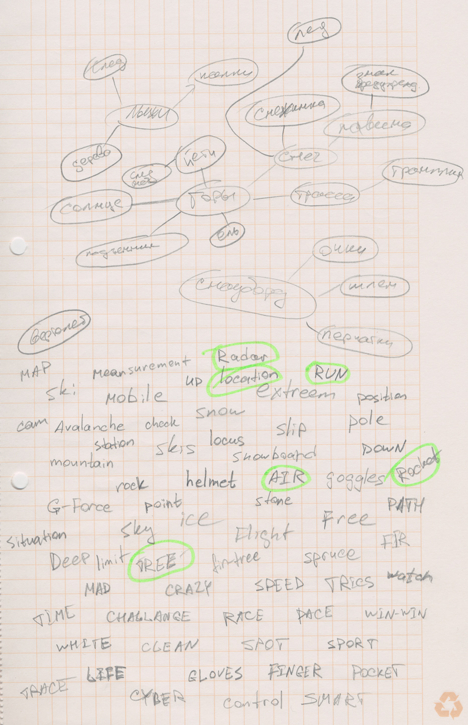 лед
след
знак
лыжи
снежинка
йети
снег
дерево
трасса
трамплин
солнце
горы
подъемник
ель
очки
сноуборд
шлем
перчатки
вертолет
MAP Measurement Radar
up location RUN
Ski Mobile extreem position
cam Avalanche check snow slip pole
station skis locus
mountain snowboard DOWN
rock helmet AIR goggles Rocket
G-Force point stone PATH
situation Sky ice Flight Free
FIR
Deep limit TREE firtree spruce
MAD CRAZY SPEED TRICS watch
TIME CHALLANGE RACE PACE WIN-WIN
WHITE CLEAN SPOT SPORT
TRACE LIFE GLOVES FINGER POCKET
CYBER control SMART